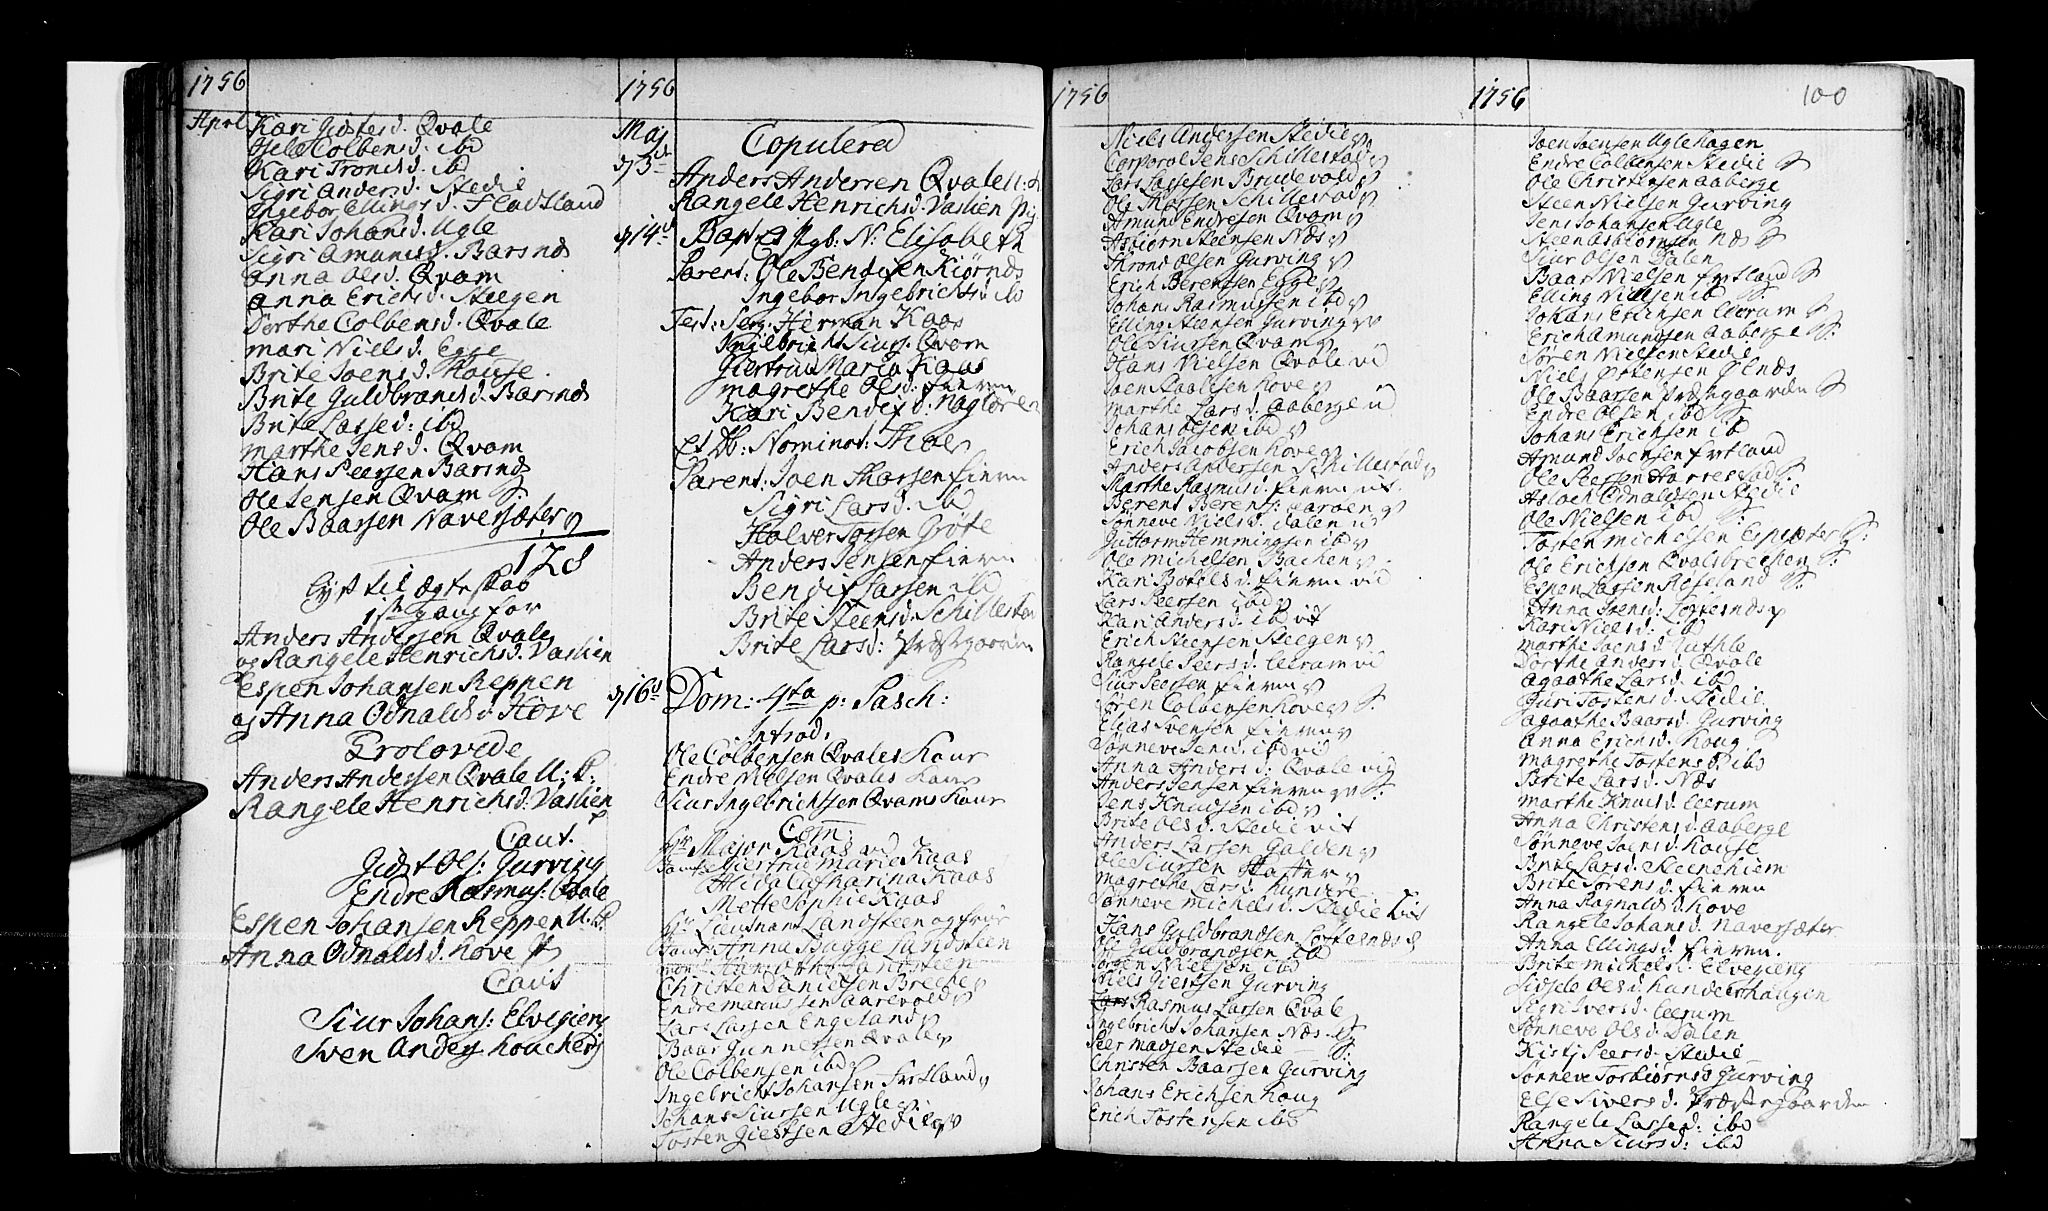 1756
Aprl
Kari Giæstesd. Qvale
Colbensd: ibd
Kari Tronsd. ibd
Sigri Andersd. Stedie
Ingebor Ellingsd. Fladtland
Kari Johansd. Ugle
Sigri Amundsd. Barsnæs
Anna Olsd. Qvam
Anna Erichsd. Steegen
Dorthe Colbensd. Qvale
Mari Nielsd. Egge
Brite Joensd. Kouse
Brite Guldbrandsd. Barsnæs
Brite Lassed: ibd
Marthe Jensd. Qvam
Hans Peersen Barsnæs
Ole Jensen Qvam
Ole Baarsen Naversæter
128
Lyst til Ægteskab
1ste gang for
Anders Andersen Qvale
og Rangele Henrichsd. Vaslien
Espen Johansen Reppen
og Anna Odnalds d. Hove
Trolovede
Anders Andersen Qvale U: K:
Rangele Henrichsd. Vaslien P
Caut.
Giæst Ols: Gurving
Endre Rasmus: Qvale
Espen Johansen Reppen U. K.
Anna Odnaldsd. Hove P
Caut
Siur Johans: Elvegieng
Sven Anders
1756
Maj
d 3d
Copulered
Anders Andersen Qvale U: K
Rangele Henrichsd. Vaslien Pig
d 14d
Bapt: N: Elisabeth
Parent: Ole Bendixen Kiørnæs
Ingebor Ingebrichtsd: ib
Test: Serg. Herman Kaas
Ingebricht Siurs: Qvam
Giertrud Maria Kaas
Magrethe Olsd:
Kari Bendixd:
Et Nominat: Thoe
Parent: Joen Thorsen
Sigri Larsd. ibd
Halver Grøte
Anders Jensen
Bendix Larsen ibd
Brite Steensd. Schillestad
Brite Larsd: Præstgaarden
d 16d
Dom: 4ta p: Pasch:
Introd.
Ole Colbensen Qvales Kone
Endre Nielsen Qvales Kone
Siur Ingebrichtsen Qvams Kone
Com:
Hr Major Kaas
Giertrud Marie Kaas
Alida Catharina Kaas
Mette Sophie Kaas
Hr Lieutnant Landsteen og frue
Anna Bagge Landsteen
Christen Danielsen Brede
Endre Aarevold
Lars Larsen Engeland
Baar Gunnelsen Qvale
Ole Colbensen ibd
Ingebricht Johansen Frtland
Johans Siursen Ugle
Tosten Giestsen Stedie
1756
Niels Andersen Stedie
Corporal Jens Schillestad
Lars Lassesen Brudevold
Ole Thorsen Schillestad
Amund Endresen Qvam
Asbiørn Steensen Næs
Thrond Olsen Gurving
Erich Berentsen Egge
Johans Rasmussen ibd
Elling Steensen Gurving
Ole Siursen Qvam
Hans Nielsen Qvale
Joen Hove
Marthe Larsd. Aaberge
Johans Olsen ibd
Erich Jacobsen Hove
Anders Andersen Schillestad
Marthe Rasmusd.
Berent Berents:
Sønneve Nielsd. Dalen
Guttorm Hemmingsen ibd
Ole Michelsen Bachen
Kari Botolsd.
Lars Peersen ibd
Kari Andersd. ibd
Erich Steensen Steegen
Rangele Peersd. Leerum
Siur Peersen
Søren Colbensen Hove
Elias Svensen
Sønneve ibd
Anna Andersd: Qvale
Anders Jensen
Jens Knudsen ibd
Brite Olsd. Stedie
Anders Larsen Galden
Ole Siursen
Magrethe Larsd.
Sønneve Michelsd. Stedie
Hans Guldbrandsen Loftesnæs
Ole Guldbrandsen ibd
Jørgen Nielsen ibd
Niels Giestsen Gurving
Rasmus Larsen Qvale
Ingebricht Johansen Næs
Peer Madsen Stedie
Christen Baarsen Gurving
Johans Erichsen Houg
Erich Tostensen ibd
1756
100
Joen Joensen Uglehagen
Endre Colbensen Stedie
Ole Christensen Aaberge
Steen Nielsen Gurving
Jens Johansen Ugle
Steen Asbiørnsen Næs
Siur Olsen Dalen
Baar Nielsen Frtland
Elling Nielsen ibd
Johans Erichsen Leerum
Erich Amundsen Aaberge
Søren Nielsen Stedie
Niels Ølnæs
Ole Baarsen Præstgaarden
Endre Olsen ibd
Johans Erichsen ibd
Amund Joensen Frtland
Ole Peersen
Asloch Odnaldsen Stedie
Ole Nielsen ibd
Tosten Michelsen Espesæter
Ole Erichsen Qvalsbrechen
Espen Larsen Roseland
Anna Loftesnæs
Kari Nielsd: ibd
Marthe Joensd.
Dorthe Andersd. Qvale
Agaathe Larsd. ibd
Guri Tostensd. Stedie
Agaathe Baarsd. Gurving
Anna Erichsd. Houg
Magrethe Tostensd. ibd
Brite Larsd. Næs
Marthe Knudsd. Leerum
Anna Christensd. Aaberge
Sønneve Joensd. Kouse
Brite Larsd. Steenehiem
Brite Sørensd.
Anna Ragnaldsd. Hove
Rangele Johansd. Naversæter
Anna Ellingsd.
Brite Michelsd. Elvegieng
Sidsele Olsd.
Sigri Iversd. Leerum
Sønneve Olsd. Dalen
Kisti Peersd. Stedie
Sønneve Torbiørnsd Gurving
Else Siversd. Præstegaarden
Rangele Lassed: ibd
Anna Siursd: ibd